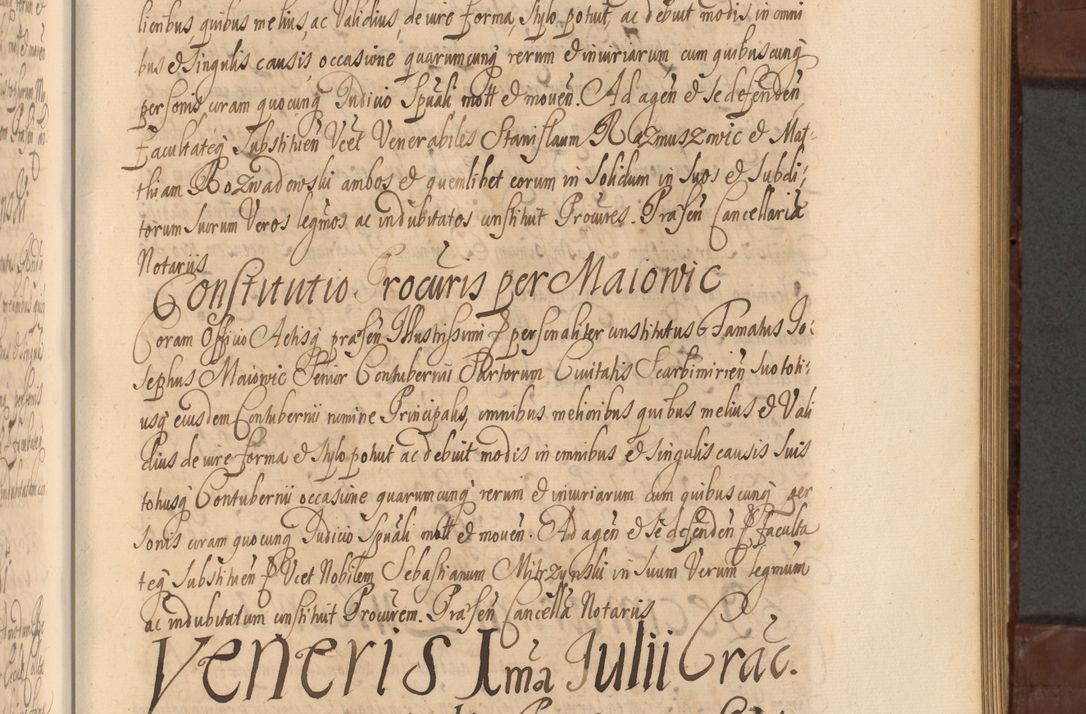 lioribus quibus melius, ac Validius, de iure forma, stylo potuit, ac debuit modis, in omni
bus et singulis causis, occasione quarumcunq rerum et iniuriarum, cum quibuscunq
personis coram quocunq Judicio Spuali mott et moven. Ad agen et se defenden
Facultateq Substituen Vcet Venerabiles Stanislaum Razmuszowic et Mat-
thiam Rozwadowski ambos et quemlibet eorum in Solidum in Suos et Subdi-
torum Suorum Veros legmos ac indubitatos constituit Procures. Præsen Cancellariæ
Notariis
Constitutio Procuris per Maiowic
Coram Officio Actisq præsen Illustrissimi personaliter constitutus Famatus Jo-
sephus Maiowic Senior Contubernii Sartorum Civitatis Scarbimirien Suo toti-
usq eiusdem Contubernii nomine Principalis, omnibus melioribus quibus melius et Vali
dius de iure forma et stylo potuit ac debuit modis in omnibus et singulis causis Suis
totiusq Contubernii occasione quarumcunq rerum et iniuriarum cum quibuscunq per
sonis coram quocunq Judicio Spuali mott et moven. Ad agen et se defenden Faculta
teq Substituen Vcet Nobilem Sebastianum Mitrzynski in Suum Verum legmum
ac indubitatum constituit Procurem. Præsen Cancellæ Notariis
Veneris 1ma Julii Crac.